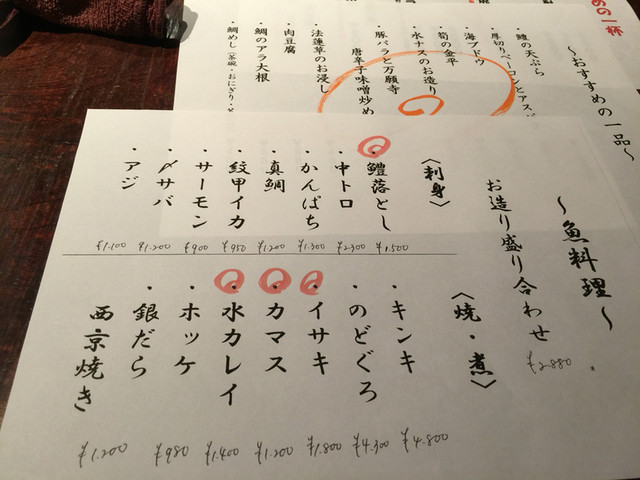 めの一杯
〜おすすめの一品〜
・鱧の天ぷら
・厚切りベーコンとアス
・海ブドウ
・筍の金平
・水ナスのお造り
・豚バラと万願寺
唐辛子味噌炒め
・法蓮草のお浸し
・肉豆腐
・鯛のアラ大根
・鯛めし（茶碗・おにぎり・
〜魚料理〜
お造り盛り合わせ ¥2,880
〈刺身〉
・鱧落とし ¥1,500
・中トロ ¥2,300
・かんぱち ¥1,300
・真鯛 ¥1,200
・紋甲イカ ¥950
・サーモン ¥900
・〆サバ ¥1,200
・アジ ¥1,100
〈焼・煮〉
・キンキ ¥4,800
・のどぐろ ¥4,300
・イサキ ¥1,800
・カマス ¥1,200
・水カレイ ¥1,400
・ホッケ ¥980
・銀だら
西京焼き ¥1,200